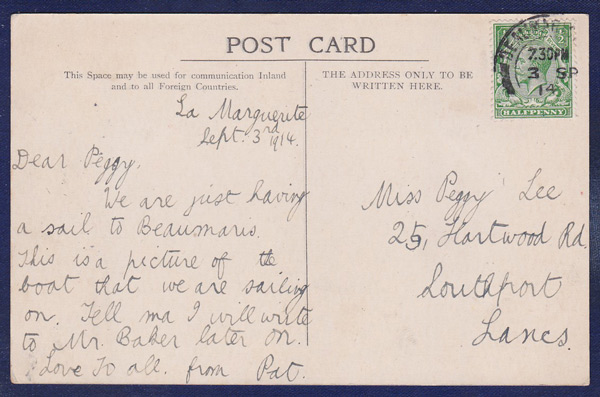 POST CARD
This Space may be used for communication Inland
and to all Foreign Countries.
THE ADDRESS ONLY TO BE
WRITTEN HERE.
La Marguerite
Sept. 3rd 1914.
Dear Peggy.
We are just having
a sail to Beaumaris.
This is a picture of the
boat that we are sailing
on. Tell ma I will write
to Mr. Baker later on.
Love To all. from Pat.
Miss Peggy Lee
25, Hartwood Rd.
Southport
Lancs.
7.30PM
3 SP
14
HALFPENNY